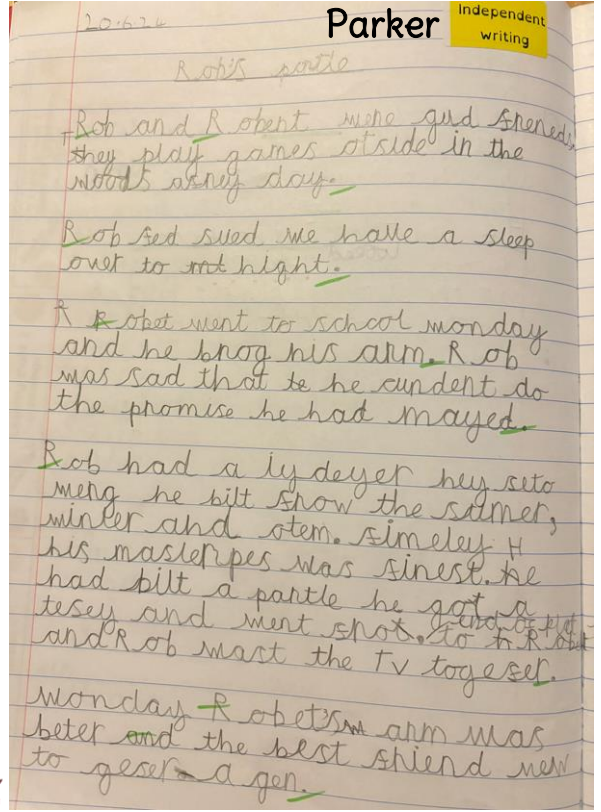 Parker
Independent
writing
20.6.24
Rob's portle
Rob and Robert were gud frened,
they play games otside in the
woods avrey day.
Rob sed sued we have a sleep
over to night.
Robet went to school monday
and he brog his arm. Rob
was sad that he cundent do
the promise he had mayed.
Rob had a iydeyer hey seto
meng he bilt frow the sumer,
winter and otem. fimeley
his masterpes was finest. he
had bilt a portle he got a
tesey and went frot. to Robet
and Rob wast the Tv togeser.
monday Robet's arm was
beter and the best friend new
to geser a gen.